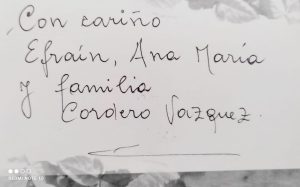 Con cariño
Efraín, Ana María
y familia
Cordero Vazquez.